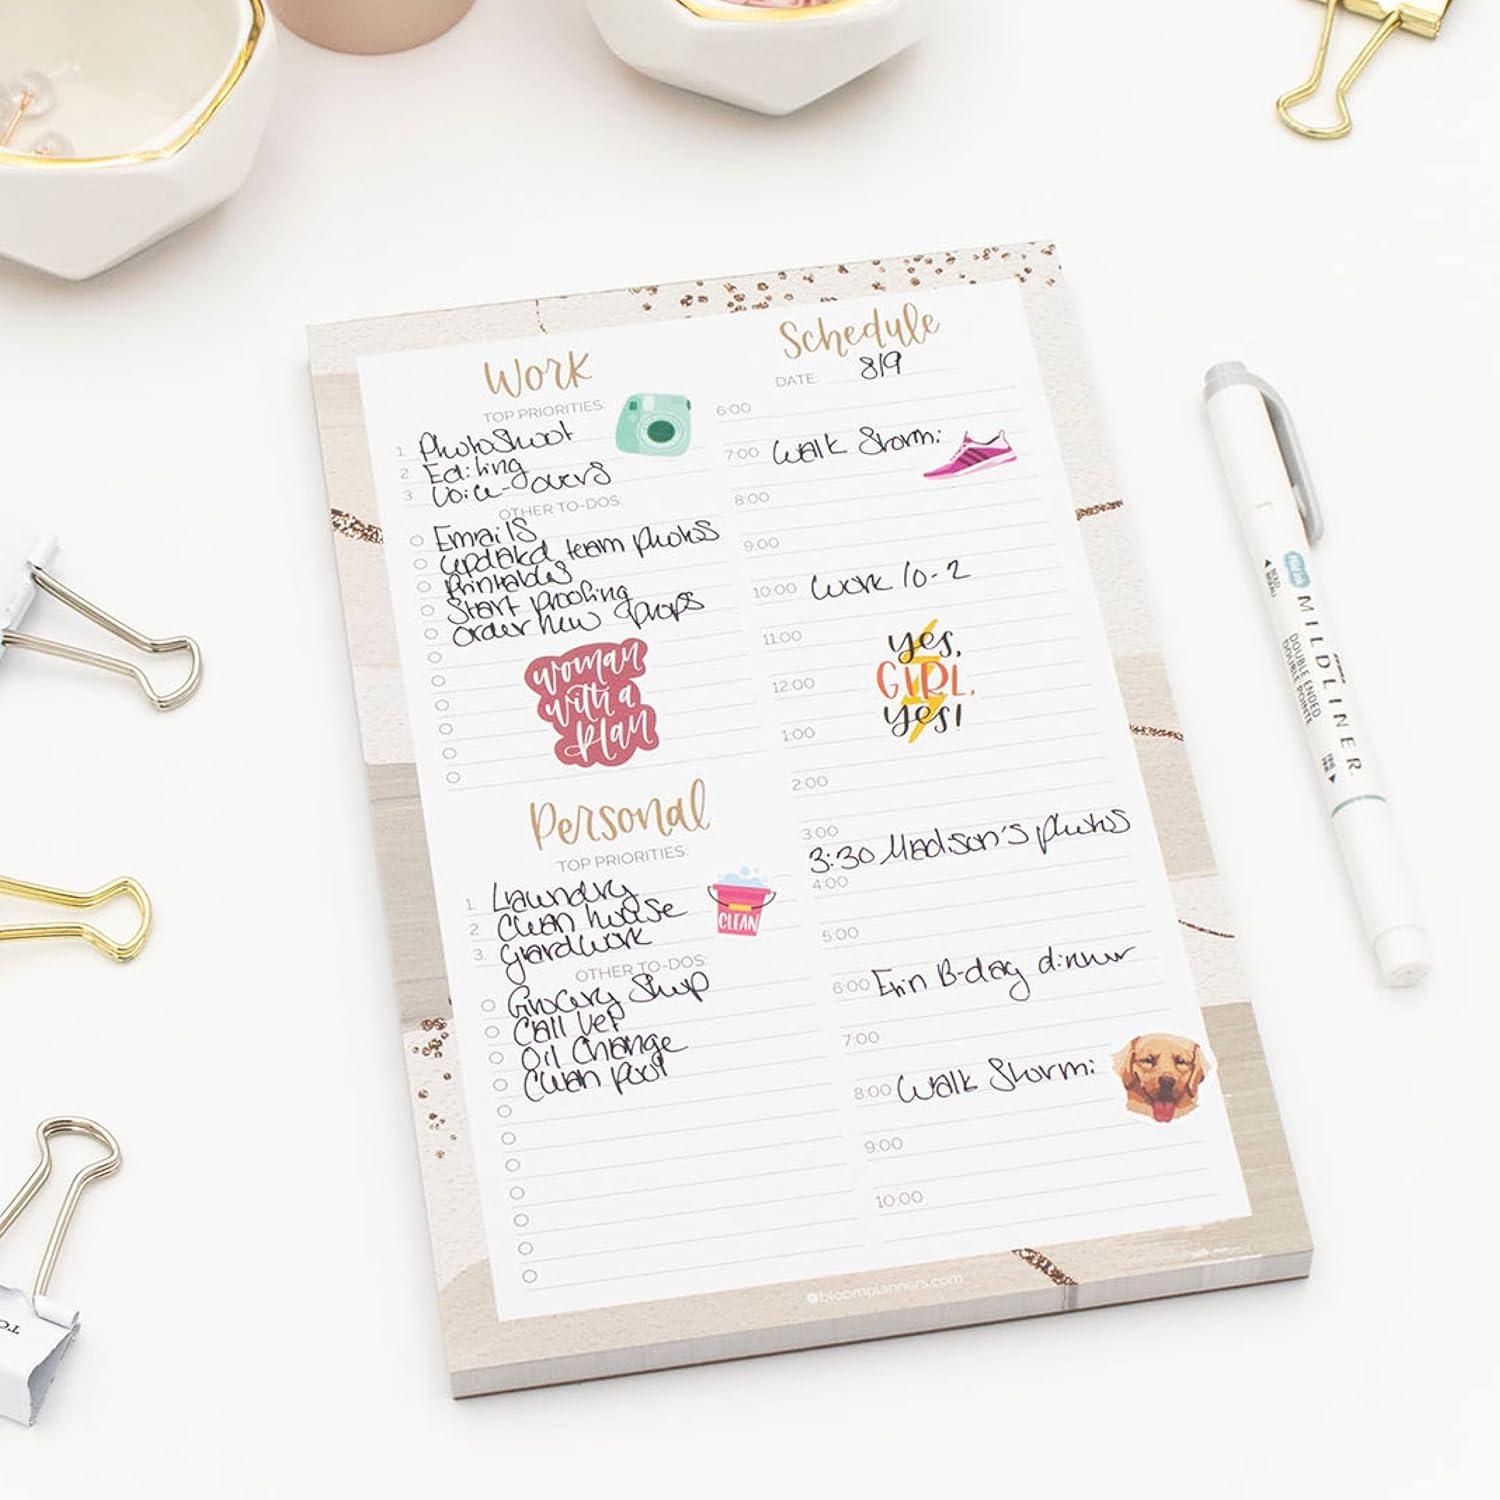 Work
TOP PRIORITIES:
1. Photoshoot
2. Editing
3. Voice-overs
OTHER TO-DOS:
Emails
updated team photos
Printables
Start proofing
order new props
woman
with a
plan
Personal
TOP PRIORITIES:
1. Laundry
2. Clean house
3. yardwork
CLEAN
OTHER TO-DOS:
Grocery Shop
Call Vet
Oil Change
Clean pool
Schedule
DATE: 8/9
6:00
7:00 Walk Stormi
8:00
9:00
10:00 Work 10-2
11:00
yes,
GIRL,
yes!
12:00
1:00
2:00
3:00
3:30 Madison's photos
4:00
5:00
6:00 Erin B-day dinner
7:00
8:00 Walk Stormi
9:00
10:00
bloomplanners.com
MILDLINER
DOUBLE ENDED
DOUBLE POINTE